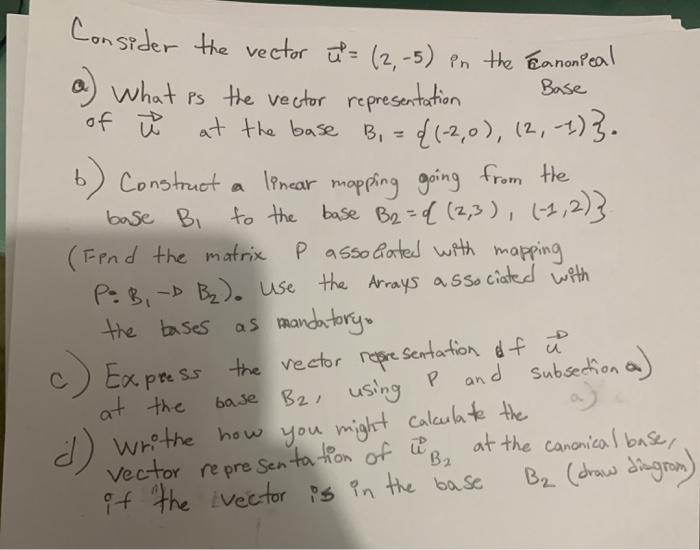 Consider the vector u⃗ = (2,-5) in the Canonical
Base
a) What is the vector representation
of u⃗ at the base B₁ = {(-2,0), (2,-1)}.
b) Construct a linear mapping going from the
base B₁ to the base B₂ = { (2,3), (-1,2)}
(Find the matrix P associated with mapping
P: B₁ → B₂). Use the Arrays associated with
the bases as mandatory.
c) Express the vector representation of u⃗
at the base B₂, using P and subsection a)
a)
d) Writhe how you might calculate the
vector representation of u⃗_B₂ at the canonical base,
if the vector is in the base B₂ (draw diagram)